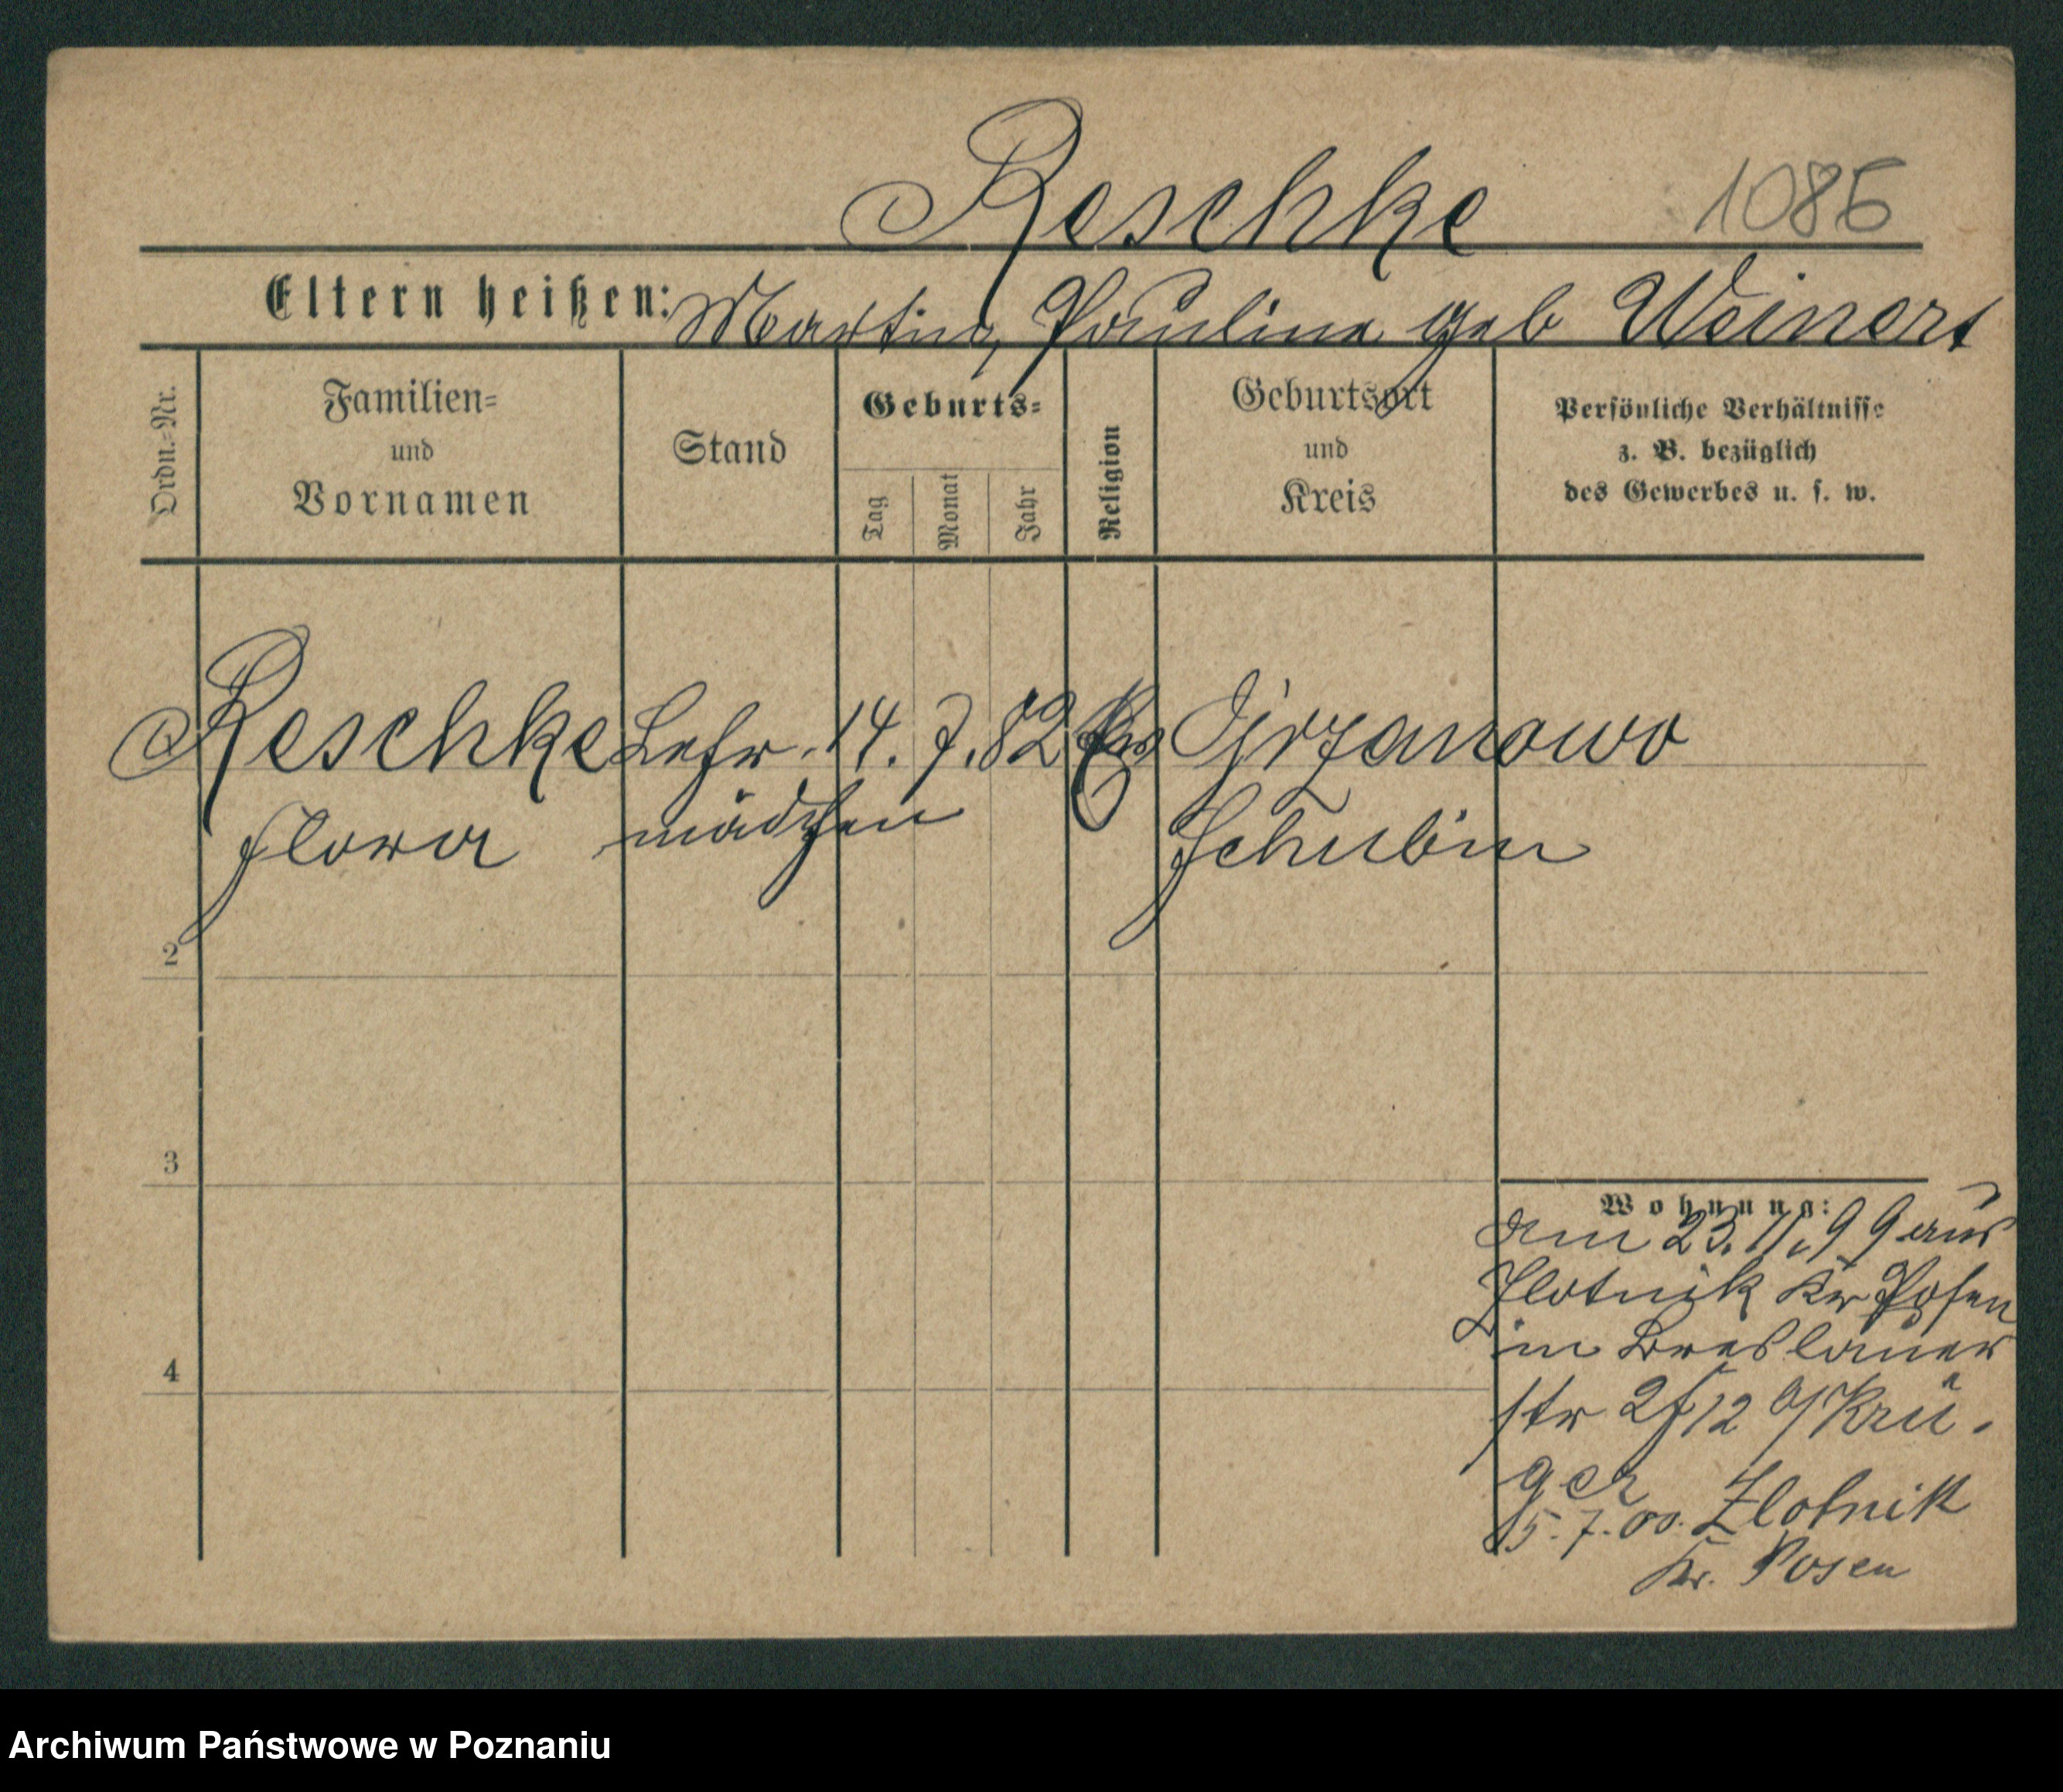 Reschke 1086
Eltern heißen: Martin, Pauline geb Weinert
Ordn.=Nr.
Familien=
und
Vornamen
Stand
Geburts=
Tag
Monat
Jahr
Religion
Geburtsort
und
Kreis
Persönliche Verhältnisse
z. B. bezüglich
des Gewerbes u. s. w.
Reschke Lehr. 14. 7. 82
Flora mädchen Schubin
2
3
4
Wohnung:
am 23. 11. 99 aus
Zlotnik Kr Posen
in Breslauer
str Krü.
ger
5. 7. 00. Zlotnik
Kr. Posen
Archiwum Państwowe w Poznaniu